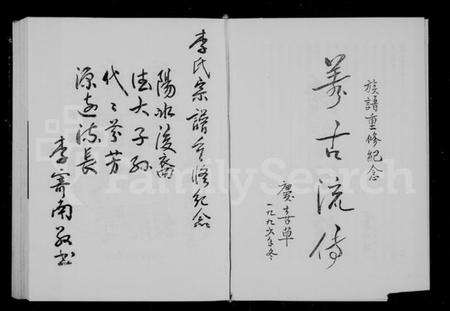 族譜重修紀念
萬古流傳
慶喜草
一九九六年冬
李氏宗譜重修紀念
陽水後裔
大子孫
代々芬芳
源遠流長
李寄南敬書
FamilySearch